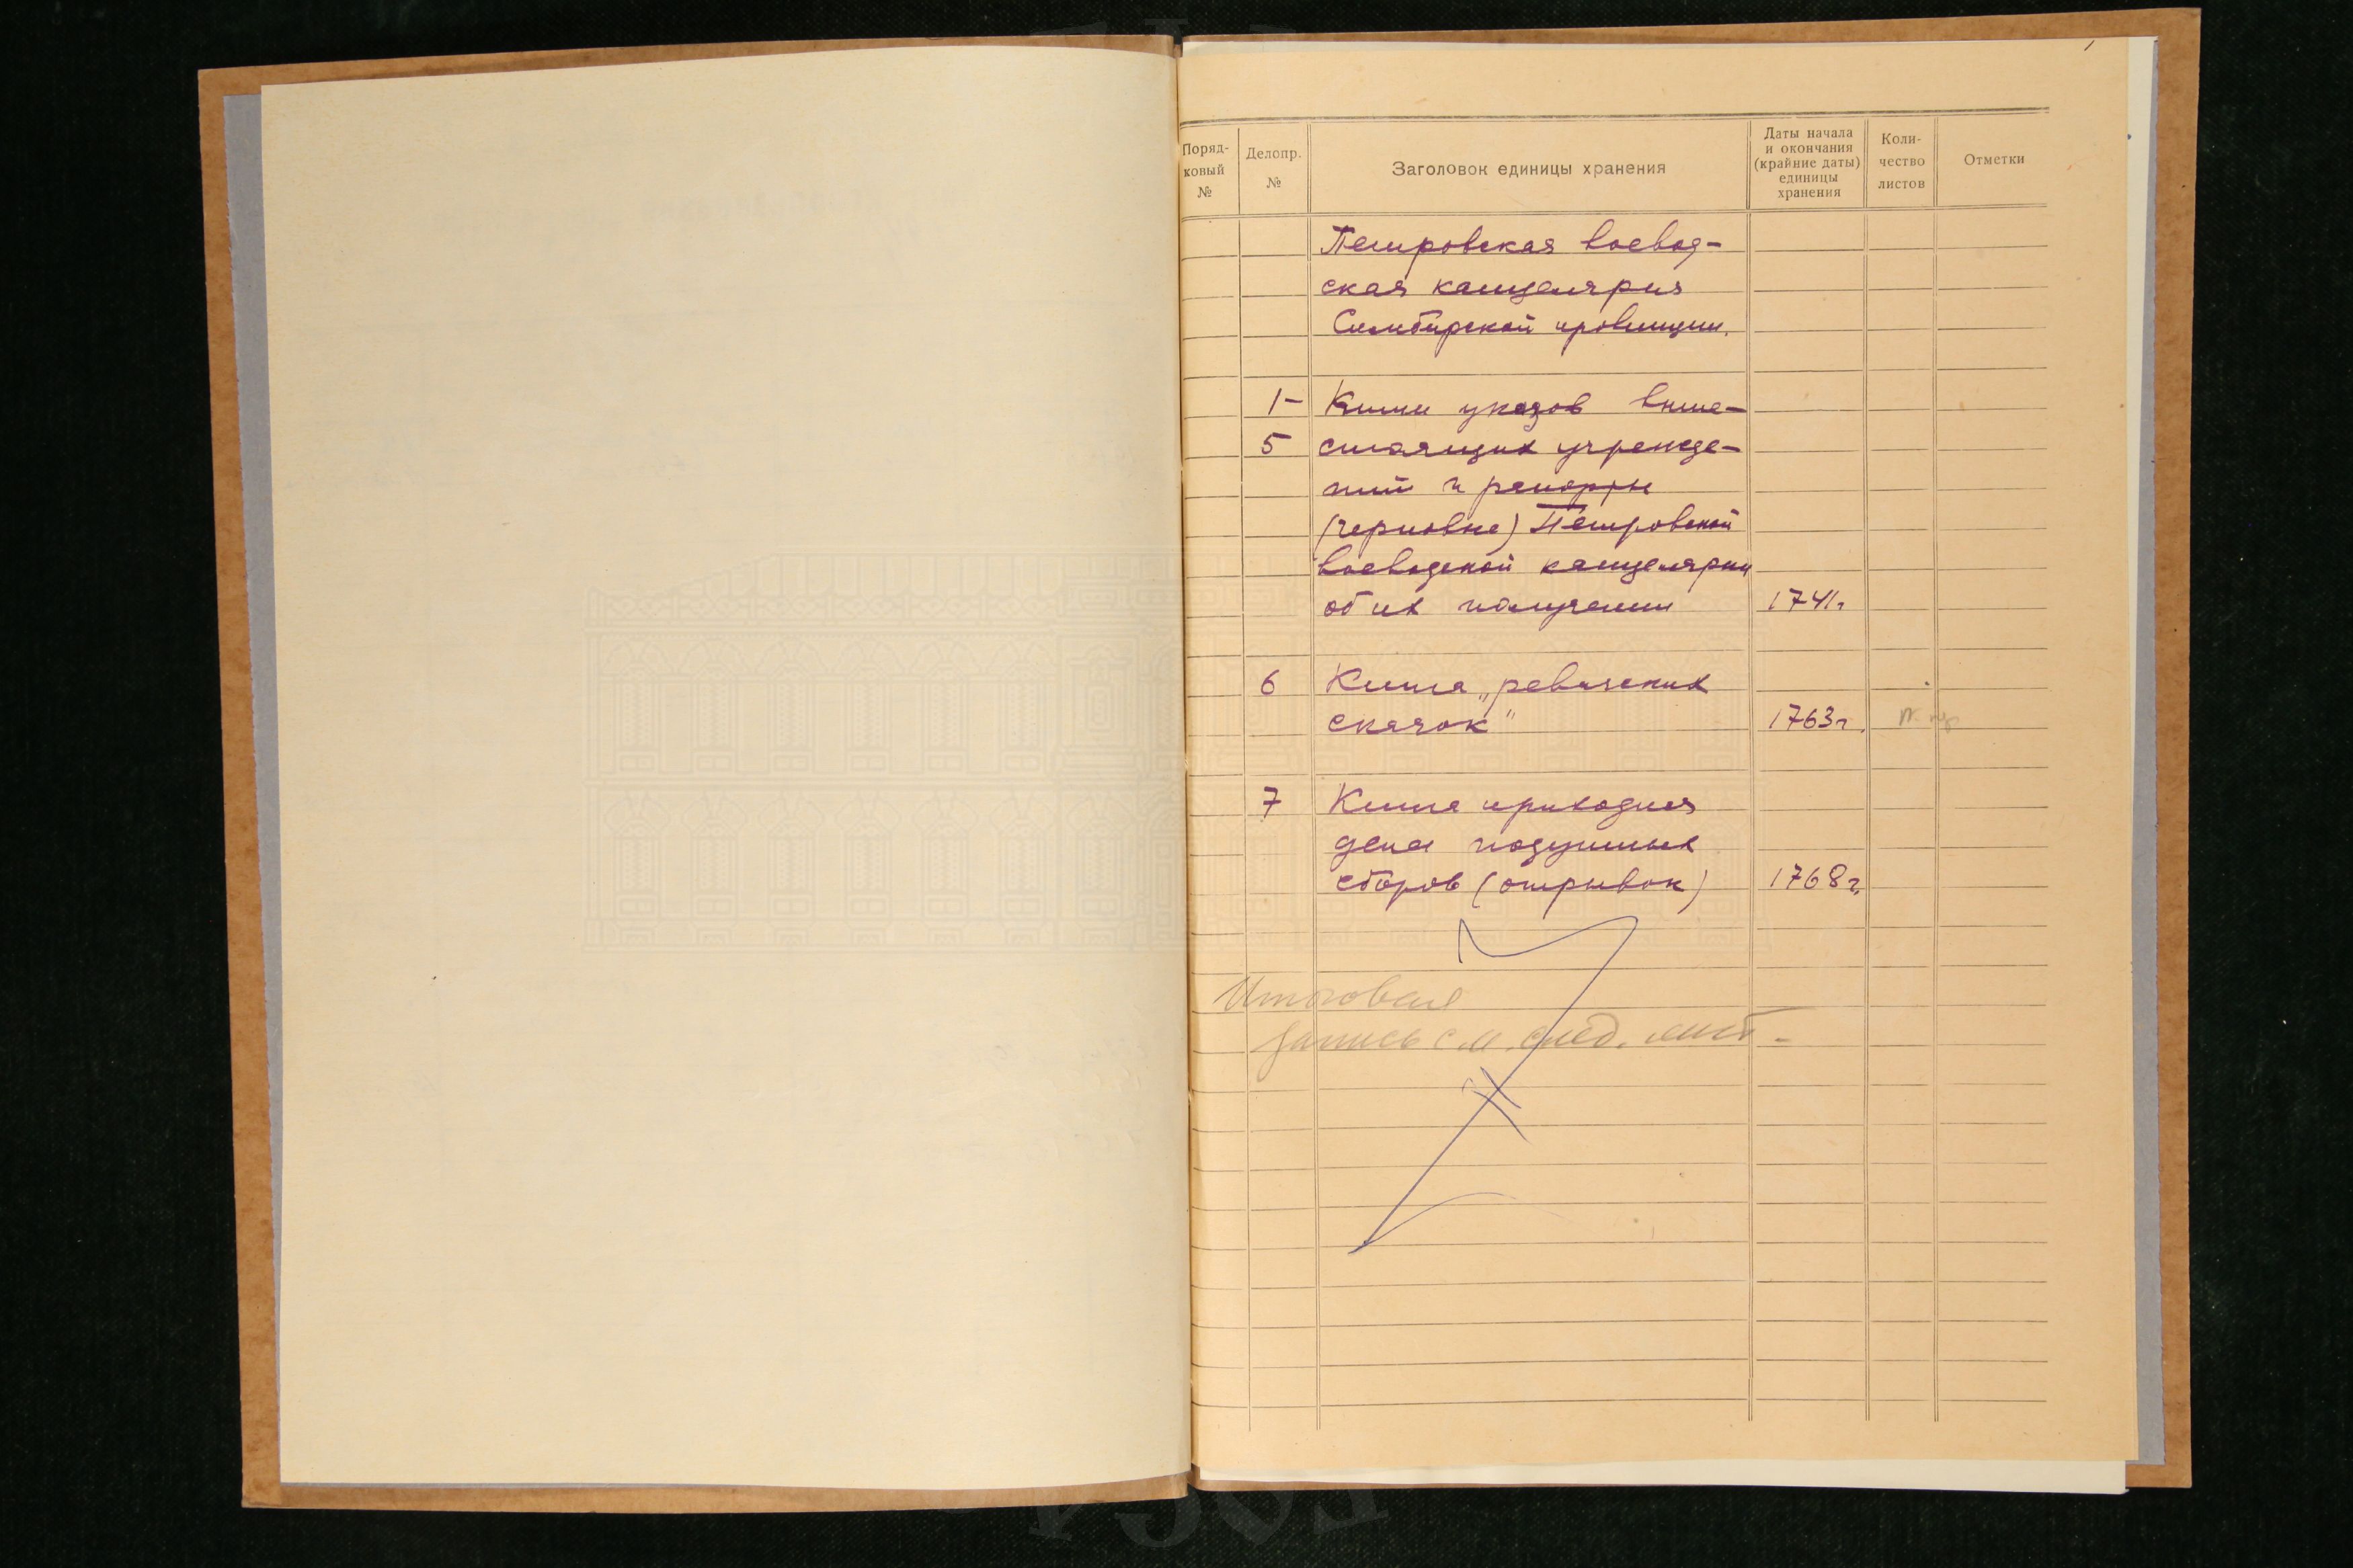 Поряд-
ковый
№
Делопр.
№
Заголовок единицы хранения
Даты начала
и окончания
(крайние даты)
единицы
хранения
Коли-
чество
листов
Отметки
Петровская воевод-
ская канцелярия
Симбирской провинции.
1- Книги указов выше-
5 стоящих учрежде-
ний и репорты
(черновые) Петровской
воеводской канцелярии
об их получении 1741г
6 Книга „ревизских
сказок" 1763г.
7 Книга приходная
денег подушных
сборов (отрывок) 1768г.
Итоговая
запись см. след. лист.